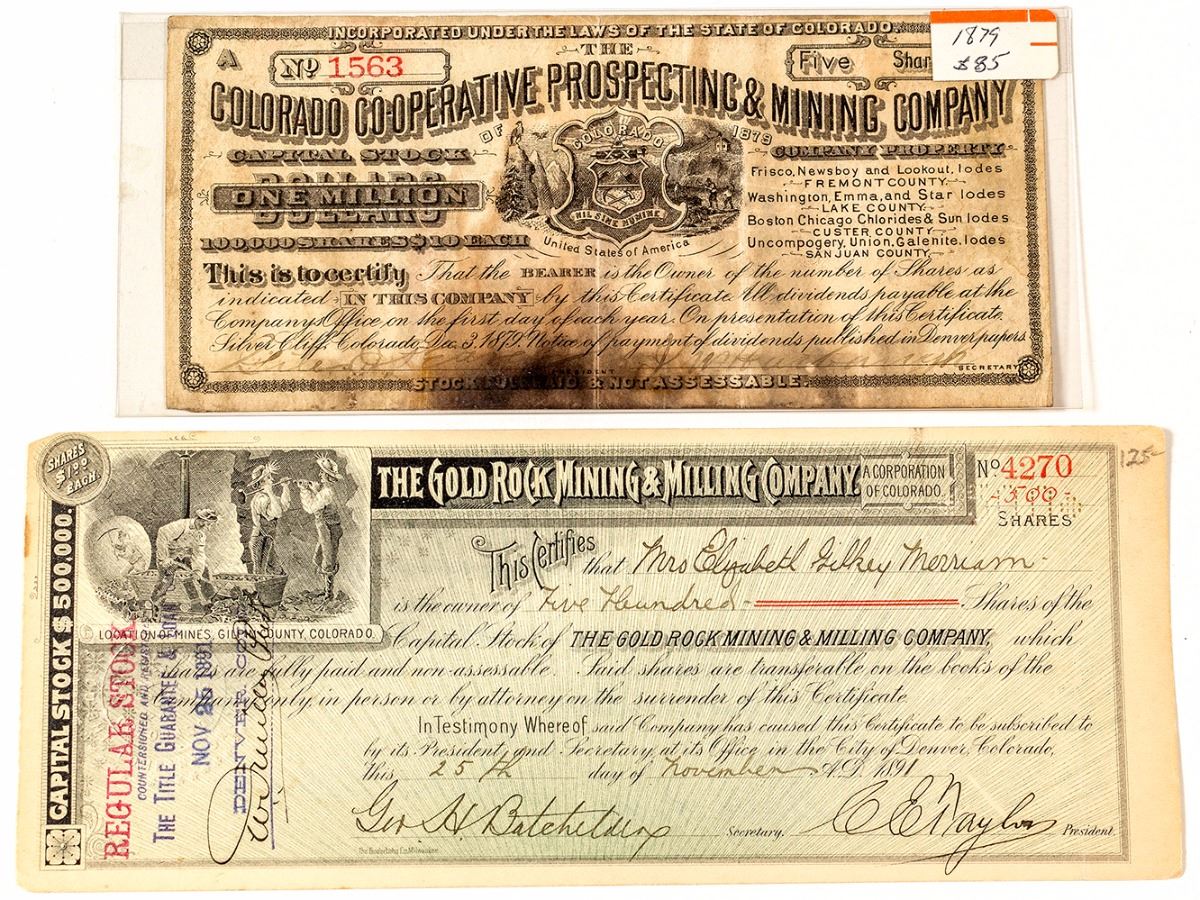 INCORPORATED UNDER THE LAWS OF THE STATE OF COLORADO.
1879
$85
A
No 1563
THE
Five Shar
COLORADO CO-OPERATIVE PROSPECTING & MINING COMPANY
OF 1879
COLORADO
NIL SINE NUMINE
United States of America
CAPITAL STOCK
ONE MILLION
DOLLARS
100,000 SHARES $10 EACH
COMPANY PROPERTY
Frisco, Newsboy and Lookout, lodes
FREMONT COUNTY.
Washington, Emma, and Star lodes
LAKE COUNTY.
Boston Chicago Chlorides & Sun lodes
CUSTER COUNTY
Uncompogery, Union, Galenite, lodes
SAN JUAN COUNTY.
This is to certify That the BEARER is the Owner of the number of Shares as
indicated IN THIS COMPANY by this Certificate. All dividends payable at the
Companys Office on the first day of each year. On presentation of this Certificate.
Silver Cliff, Colorado, Dec. 3. 1879. Notice of payment of dividends published in Denver papers
PRESIDENT SECRETARY
STOCK FULL PAID & NOT ASSESSABLE.
SHARES
$1.00
EACH.
THE GOLD ROCK MINING & MILLING COMPANY.
A CORPORATION
OF COLORADO.
No 4270
-500-
SHARES
125-
This Certifies that Mrs Elizabeth Gilkey Merriam
is the owner of Five Hundred Shares of the
Capital Stock of THE GOLD ROCK MINING & MILLING COMPANY, which
are fully paid and non-assessable. Said shares are transferable on the books of the
Company only, in person or by attorney on the surrender of this Certificate.
In Testimony Whereof, said Company has caused this Certificate to be subscribed to
by its President and Secretary, at its Office in the City of Denver, Colorado,
this 25th day of November A.D. 1891
Geo H Batchelder Secretary. C E Naylor President.
LOCATION OF MINES, GILPIN COUNTY, COLORADO.
CAPITAL STOCK $ 500.000.
REGULAR STOCK
COUNTERSIGNED AND
THE TITLE GUARANTEE & LOAN
NOV 25 1891
DENVER, COLO